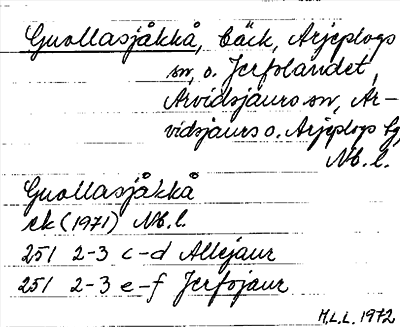 Guollasjåkkå, bäck, Arjeplogs
sn, o. Jerfolandet,
Arvidsjaurs sn, Ar-
vidsjaurs o. Arjeplogs tg,
Nb. l.
Guollasjåkkå
ek (1971) Nb. l.
251 2-3 c-d Allejaur
251 2-3 e-f Jerfojaur
H.L.L. 1972